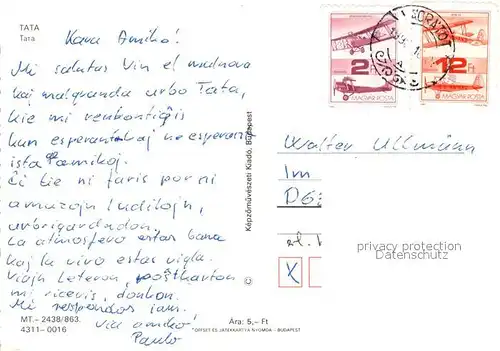 TATA
Tata
Kara Amiko!
Mi salutas Vin el malnova
kaj malgranda urbo Tata,
kie mi renkontiĝis
kun esperantistaj ne esperant
ista amikoj.
Ĉi tie ni faris por ni
amuzajn ludilojn,
La atmosfero estas bona
kaj la vivo estas vigla.
Viajn Leteron, poŝtkarton
mi ricevis, dankon.
Mi respondos jam.
via amiko
Paulo
MT.- 2438/863.
4311-0016
Ára: 5,- Ft
OFFSET ÉS JÁTÉKKÁRTYA NYOMDA BUDAPEST
Képzőművészeti Kiadó, Budapest
©
2 Ft
MAGYAR POSTA
12 Ft
MAGYAR POSTA
Walter Ullmann
Im
privacy protection
Datenschutz
X